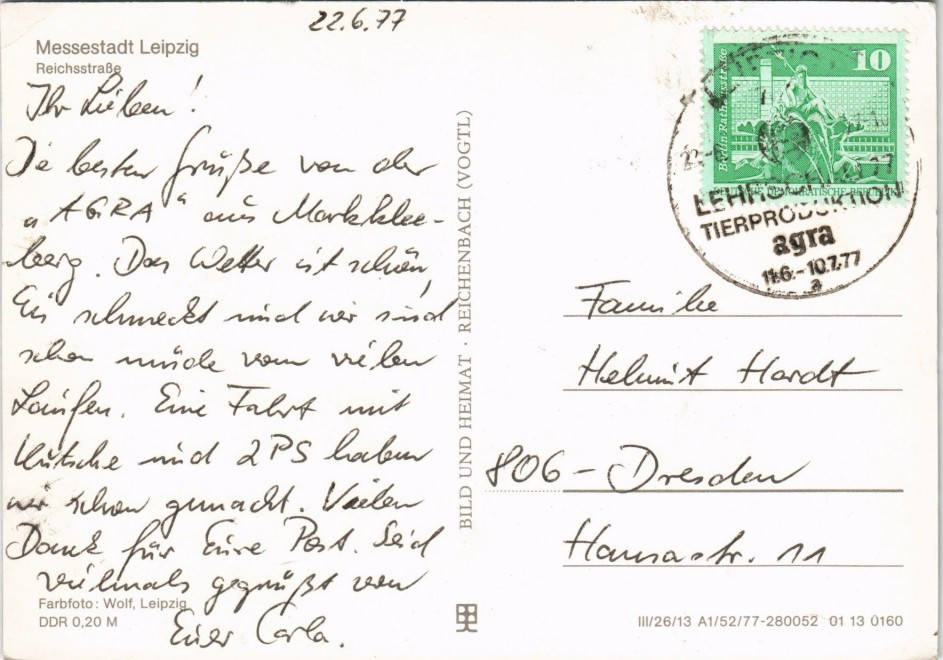 22.6.77
Messestadt Leipzig
Reichsstraße
Ihr Lieben!
Die besten Grüße von der
"AGRA" aus Markklee-
berg. Das Wetter ist schön,
Eis schmeckt und wir sind
schon müde vom vielen
Laufen. Eine Fahrt mit
Kutsche und 2PS haben
wir schon gemacht. Vielen
Dank für Eure Post. Seid
vielmals gegrüßt von
Eurer Carla.
Farbfoto: Wolf, Leipzig
DDR 0,20 M
BILD UND HEIMAT · REICHENBACH (VOGTL)
10
Berlin Rathausstraße
DEUTSCHE DEMOKRATISCHE REPUBLIK
TIERPRODUKTION
agra
11.6.-10.7.77
a
Familie
Helmut Hardt
806 - Dresden
Hansastr. 11
III/26/13 A1/52/77-280052 01 13 0160